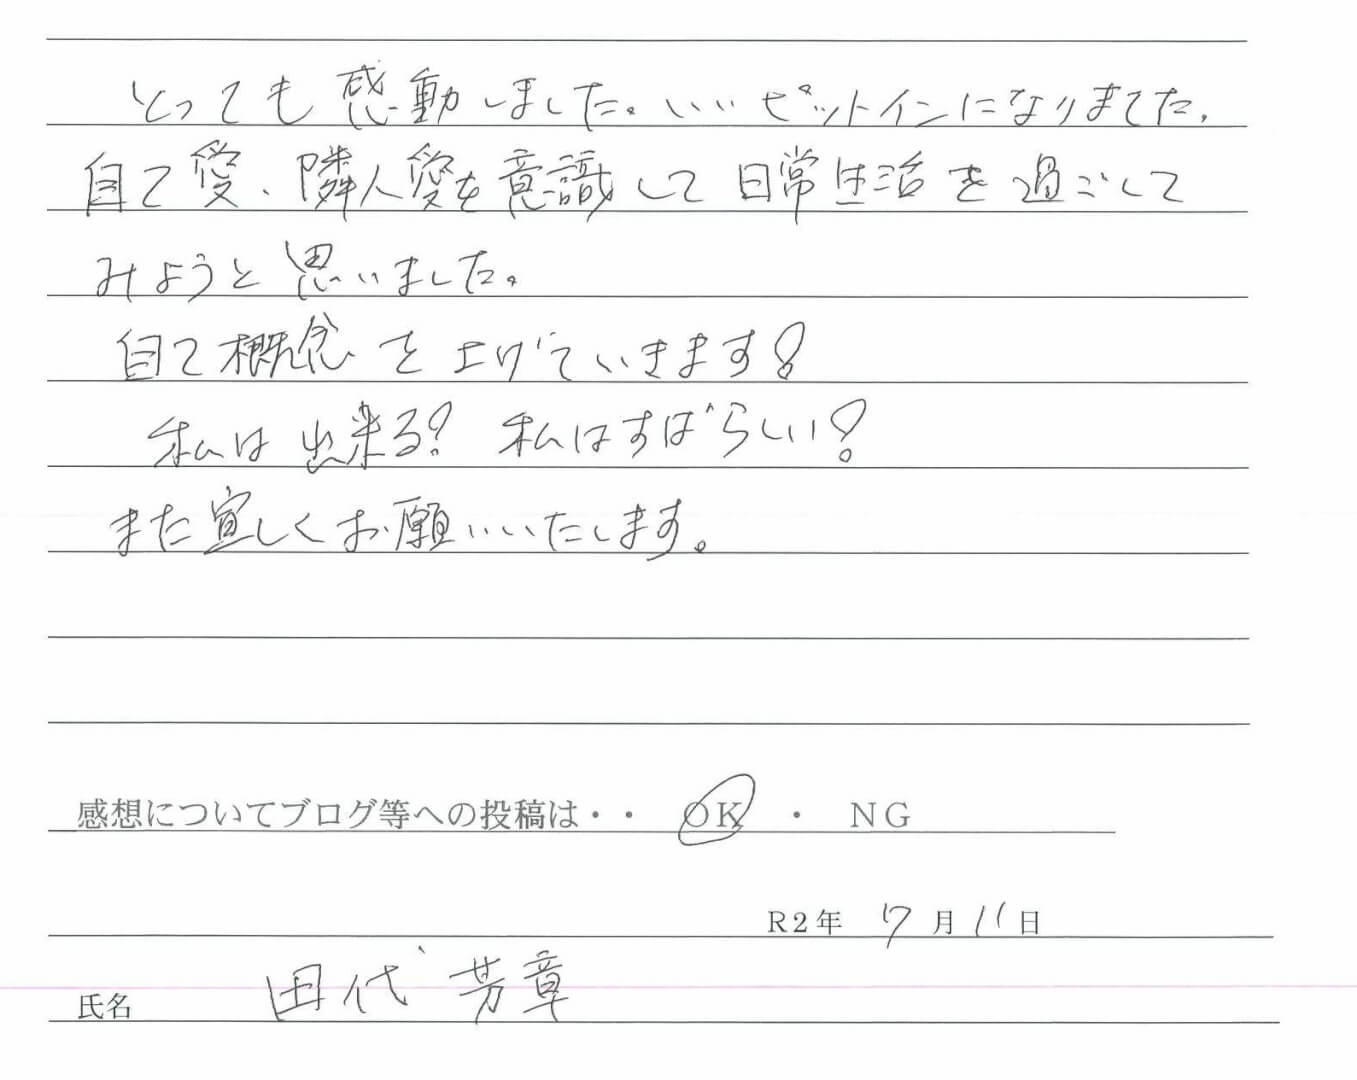 とっても感動しました。いいピットインになりました。
自己愛、隣人愛を意識して日常生活を過ごして
みようと思いました。
自己概念を上げていきます!
私は出来る!私はすばらしい!
また宜しくお願いいたします。
感想についてブログ等への投稿は・・ OK ・ NG
R2年 7月11日
氏名 田代 芳章